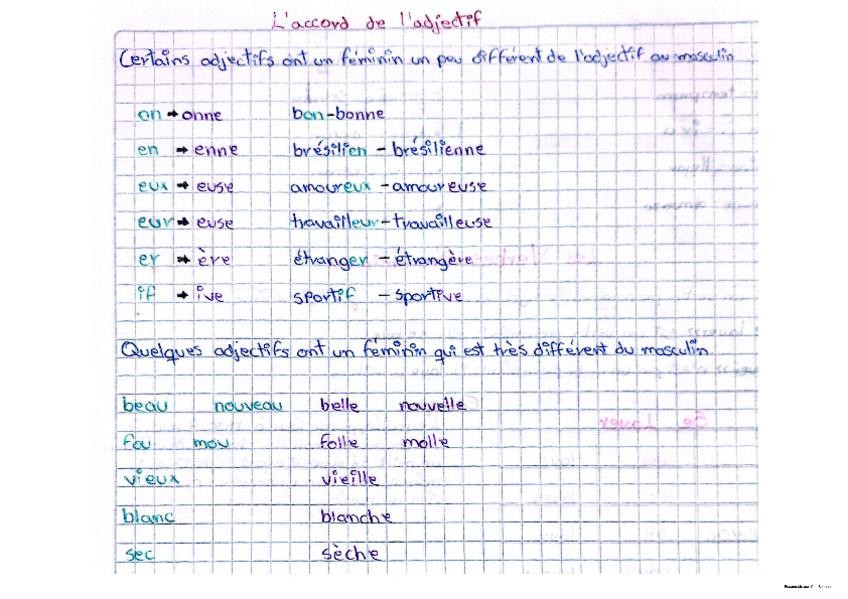 L'accord de l'adjectif
Certains adjectifs ont un féminin un peu différent de l'adjectif au masculin
on → onne bon-bonne
en → enne brésilien - brésilienne
eux → euse amoureux - amoureuse
eur → euse travailleur - travailleuse
er → ère étranger - étrangère
if → ive sportif - sportive
Quelques adjectifs ont un féminin qui est très différent du masculin.
beau nouveau belle nouvelle
fou mou folle molle
vieux vieille
blanc blanche
sec sèche